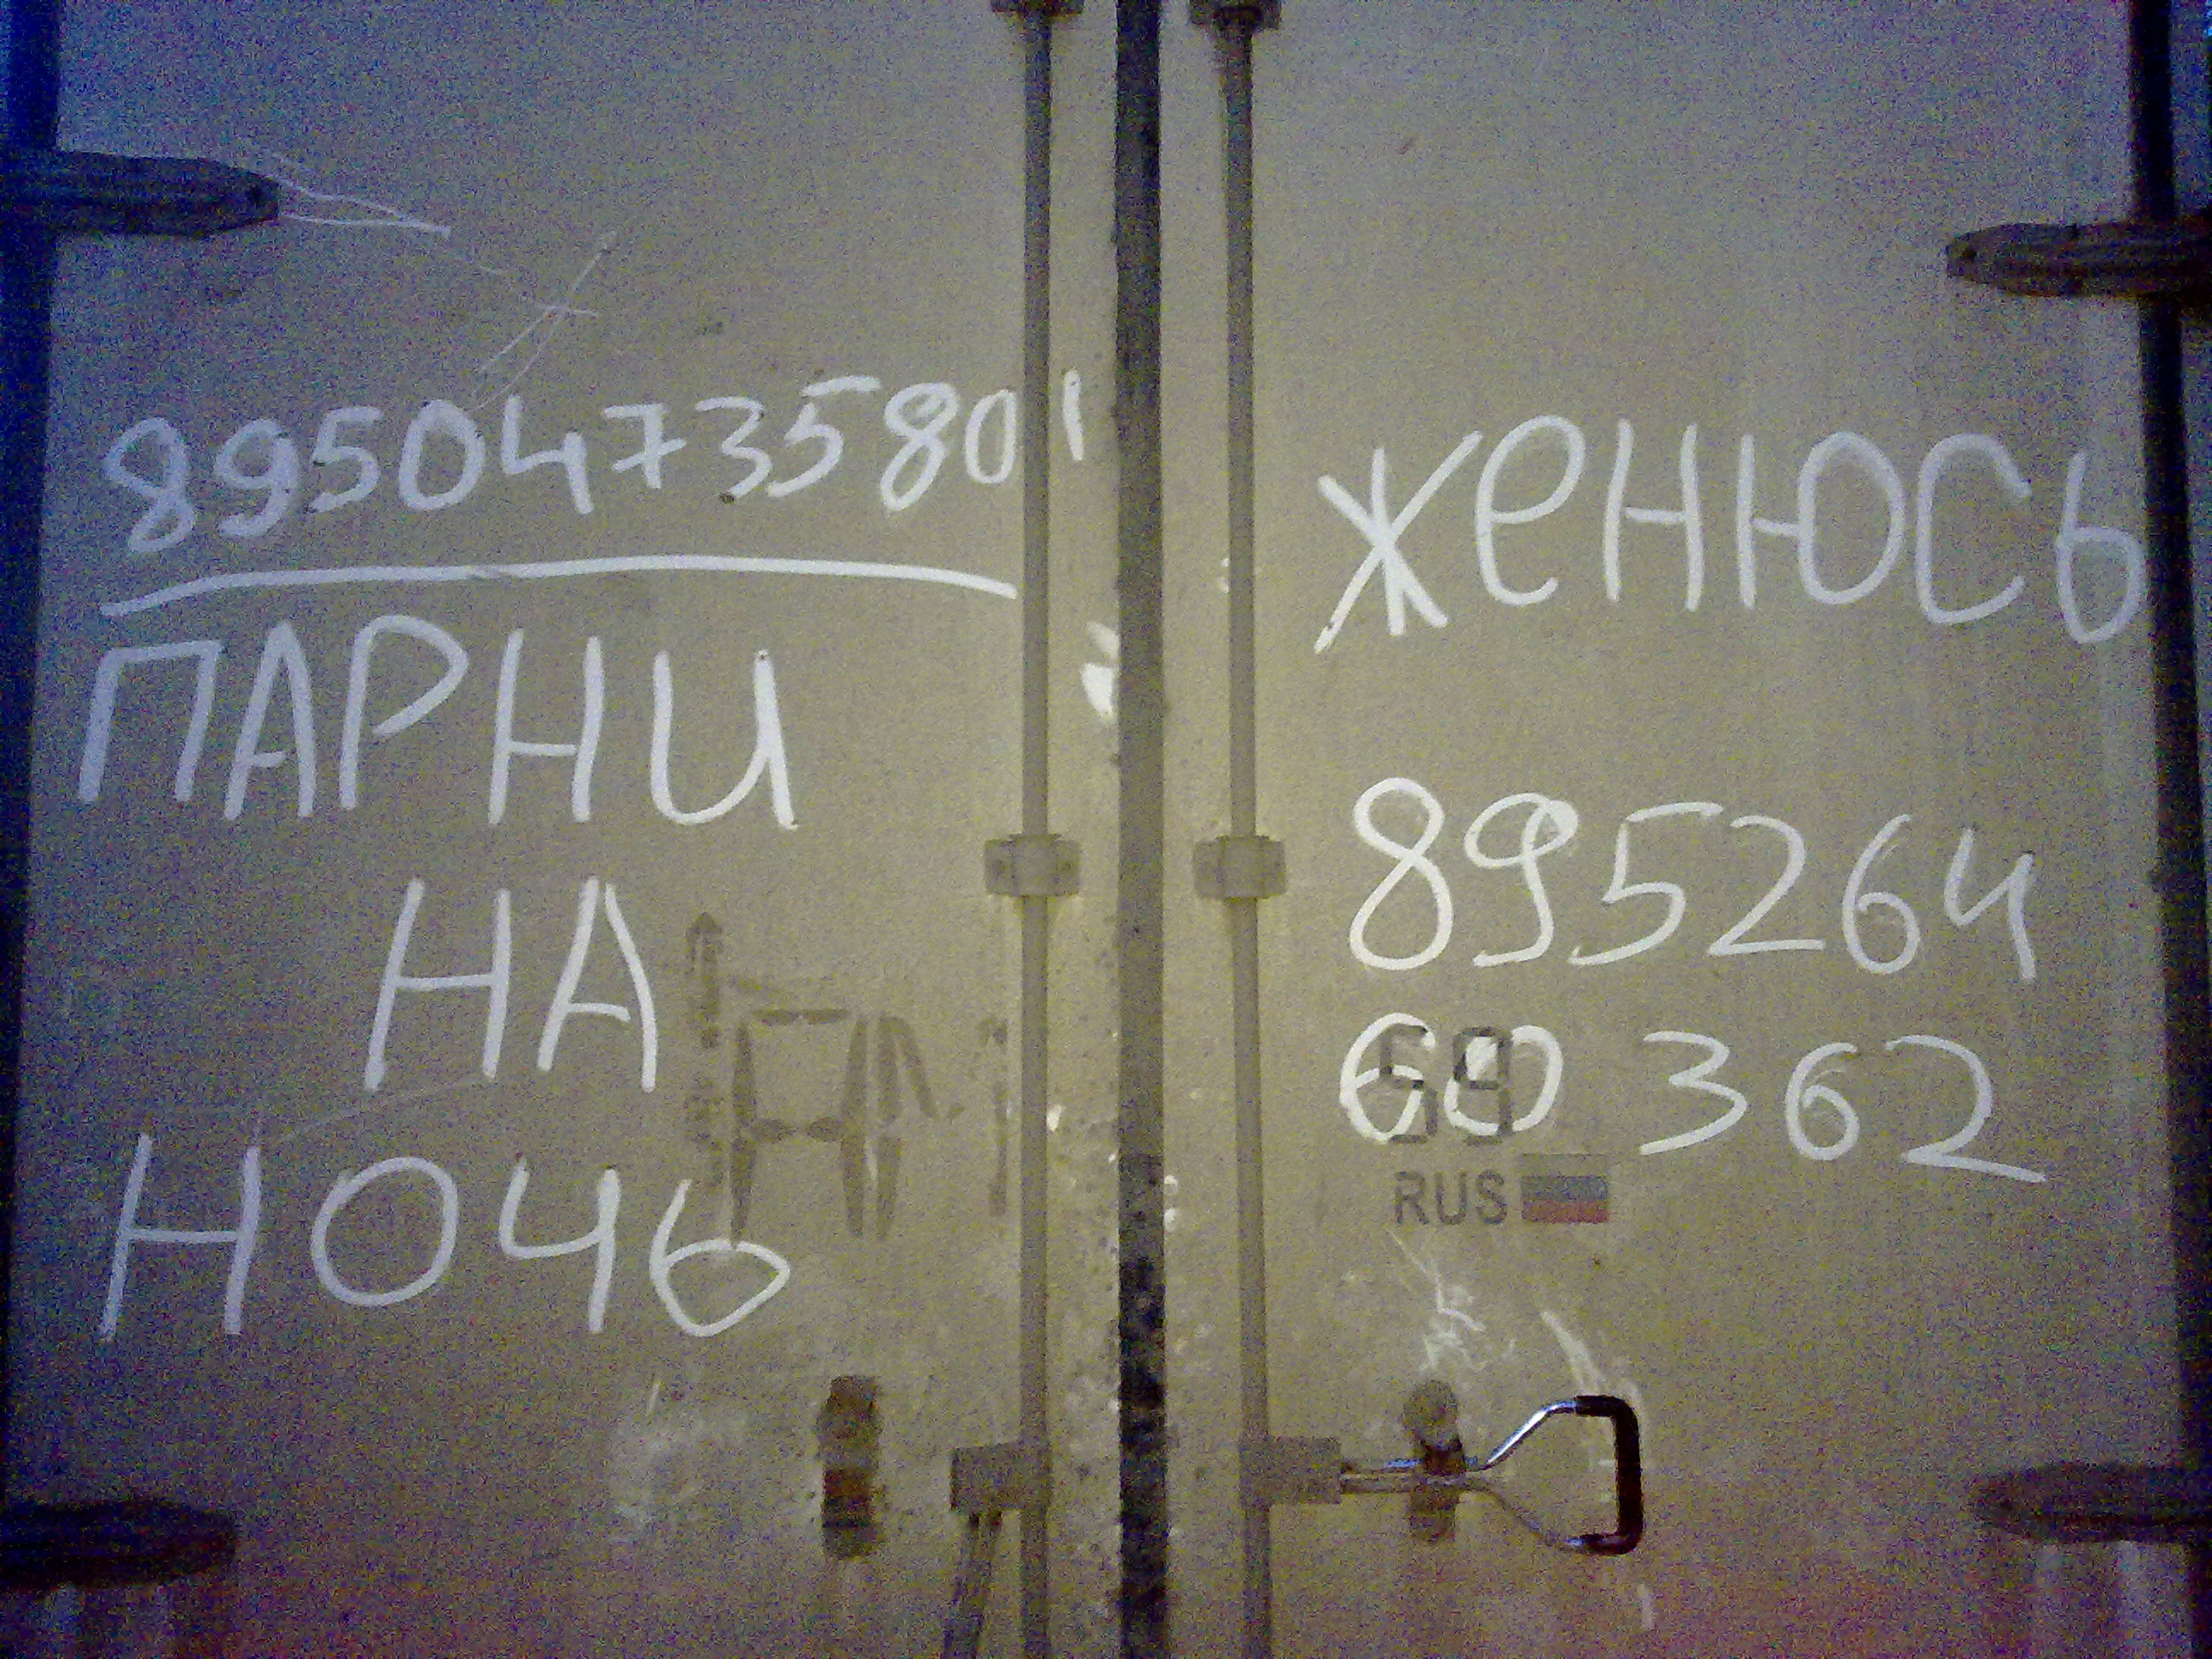 89504735801
ПАРНИ
НА
НОЧЬ
ЖЕНЮСЬ
895264
60 362
59
RUS